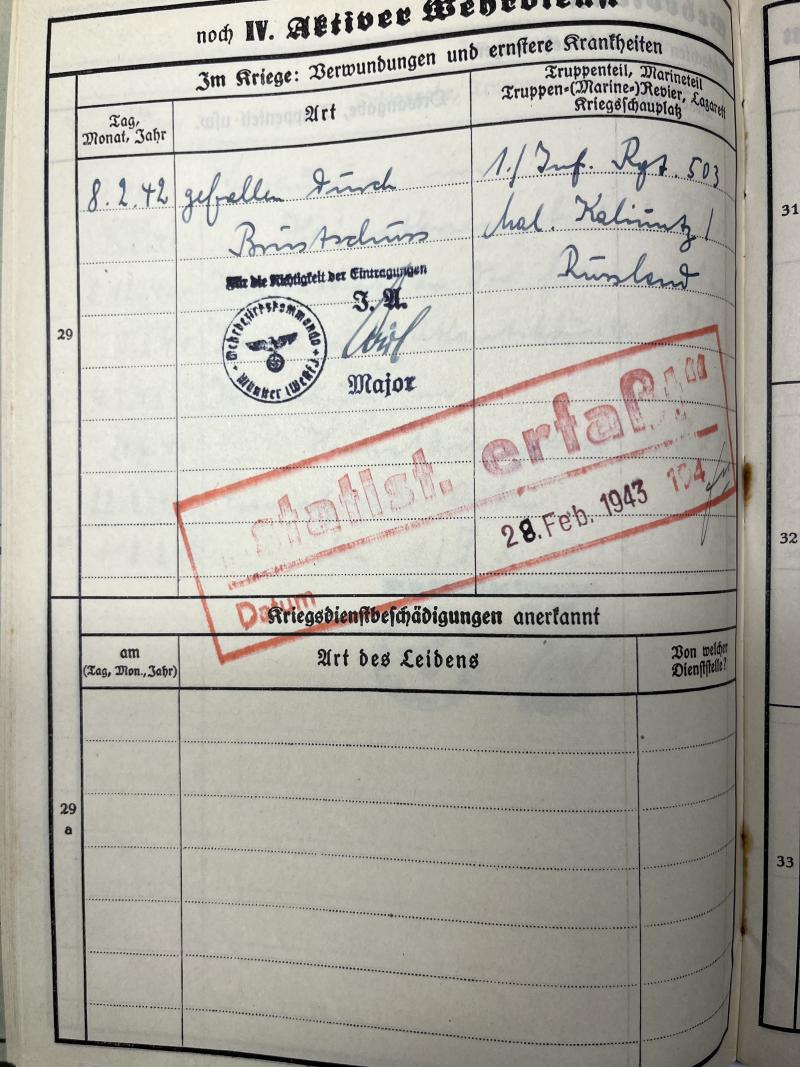 noch IV. Aktiver Wehrdienst
Im Kriege: Verwundungen und ernstere Krankheiten
Tag,
Monat, Jahr
Art
Truppenteil, Marineteil
Truppen-(Marine-)Revier, Lazarett
Kriegsschauplatz
29
8.2.42 gefallen durch
1./ Inf. Rgt. 503
Brustschuss
Mal.
Russland
Für die Richtigkeit der Eintragungen
I. A.
Wehrbezirkskommando
Münster (Westf.)
Major
statist. erfaßt
28. Feb. 1943 104
Datum
Kriegsdienstbeschädigungen anerkannt
am
(Tag, Mon., Jahr)
Art des Leidens
Von welcher
Dienststelle?
29
a
31
32
33